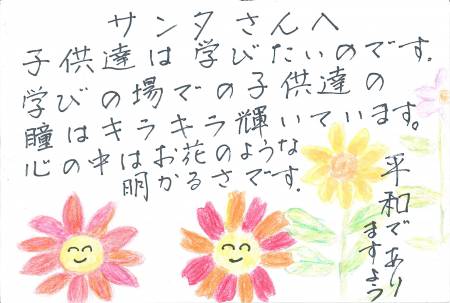 サンタさんへ
子供達は学びたいのです.
学びの場での子供達の
瞳はキラキラ輝いています。
心の中はお花のような
明かるさです.
平和であり
ますよう